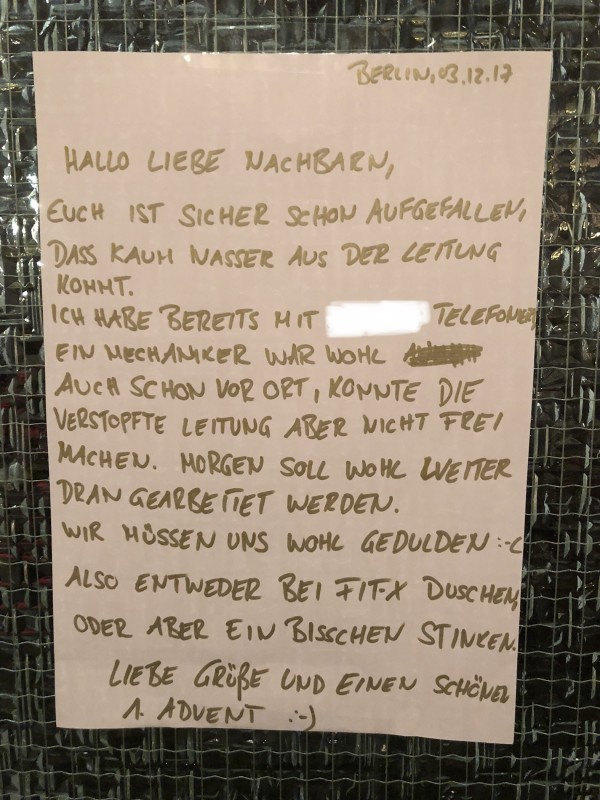 BERLIN, 03.12.17
HALLO LIEBE NACHBARN,
EUCH IST SICHER SCHON AUFGEFALLEN,
DASS KAUM WASSER AUS DER LEITUNG
KOMMT.
ICH HABE BEREITS MIT TELEFONIERT
EIN MECHANIKER WAR WOHL
AUCH SCHON VOR ORT, KONNTE DIE
VERSTOPFTE LEITUNG ABER NICHT FREI
MACHEN. MORGEN SOLL WOHL WEITER
DRAN GEARBEITET WERDEN.
WIR MÜSSEN UNS WOHL GEDULDEN :-(
ALSO ENTWEDER BEI FIT-X DUSCHEN,
ODER ABER EIN BISSCHEN STINKEN.
LIEBE GRÜßE UND EINEN SCHÖNEN
1. ADVENT :-)